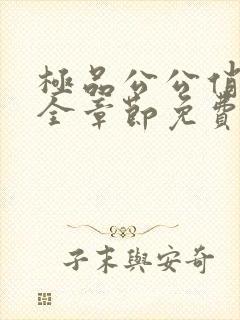 極品公公俏
全章節免費
子末與安奇